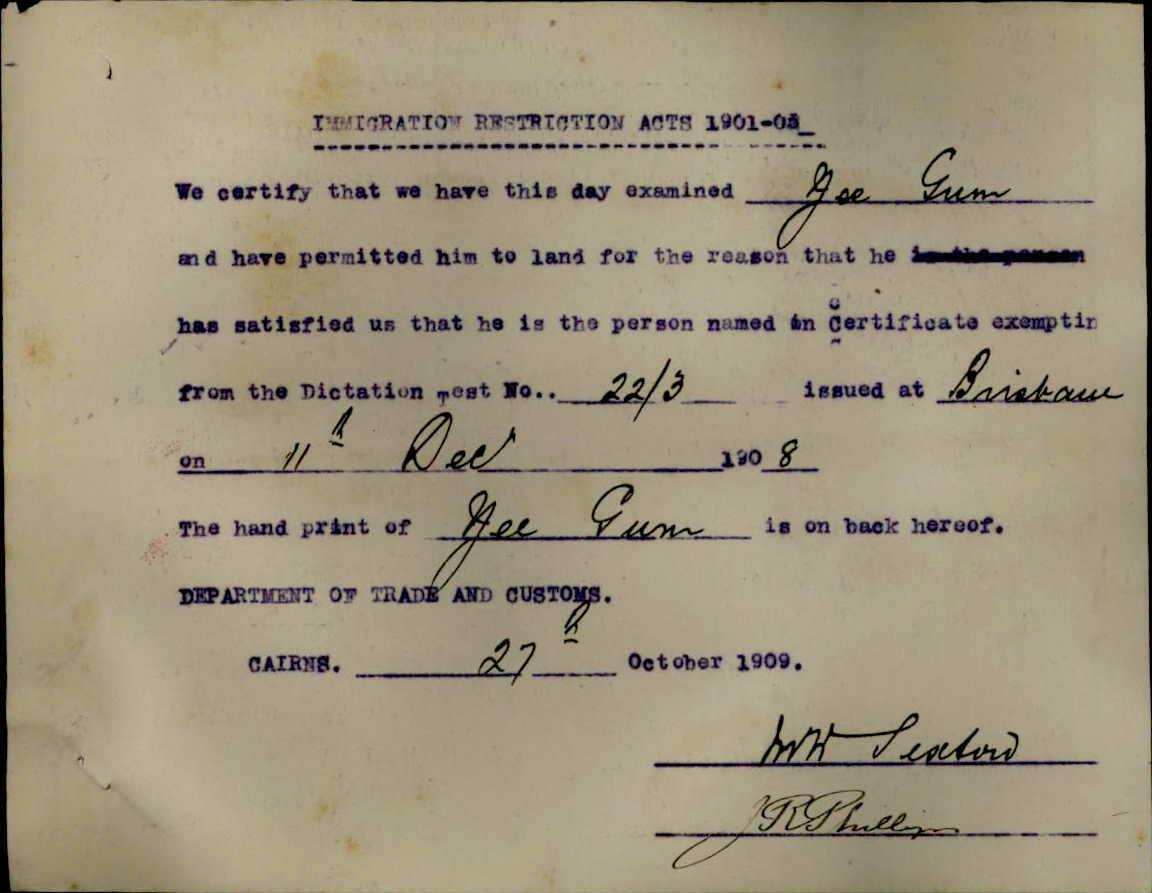 IMMIGRATION RESTRICTION ACTS 1901-05
We certify that we have this day examined Yee Gum
and have permitted him to land for the reason that he is the person
has satisfied us that he is the person named in Certificate exemptin
from the Dictation Test No.. 22/3 issued at Brisbane
on 11th Dec 1908
The hand print of Yee Gum is on back hereof.
DEPARTMENT OF TRADE AND CUSTOMS.
CAIRNS. 27th October 1909.
Sexton
J R Phillips